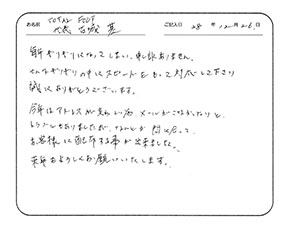 お名前 TOTAL FOOT 代表 古城 宏 ご記入日 28年12月26日
年末ぎりぎりになってしまい、申し訳ありません。
そんなぎりぎりの中にスピードをもって対応して下さり
誠にありがとうございます。
今年はアドレスが変わったのか メールがこなかったりと
もう いろいろありましたが、なんとか 間に合って
お客様に配布する事が出来ました。
来年もよろしくお願いいたします。